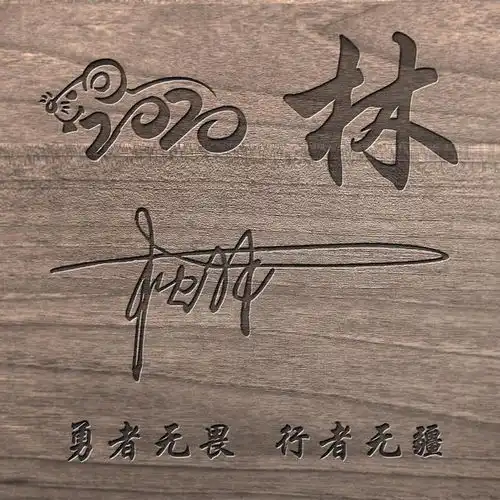 2020 林
勇者无畏 行者无疆